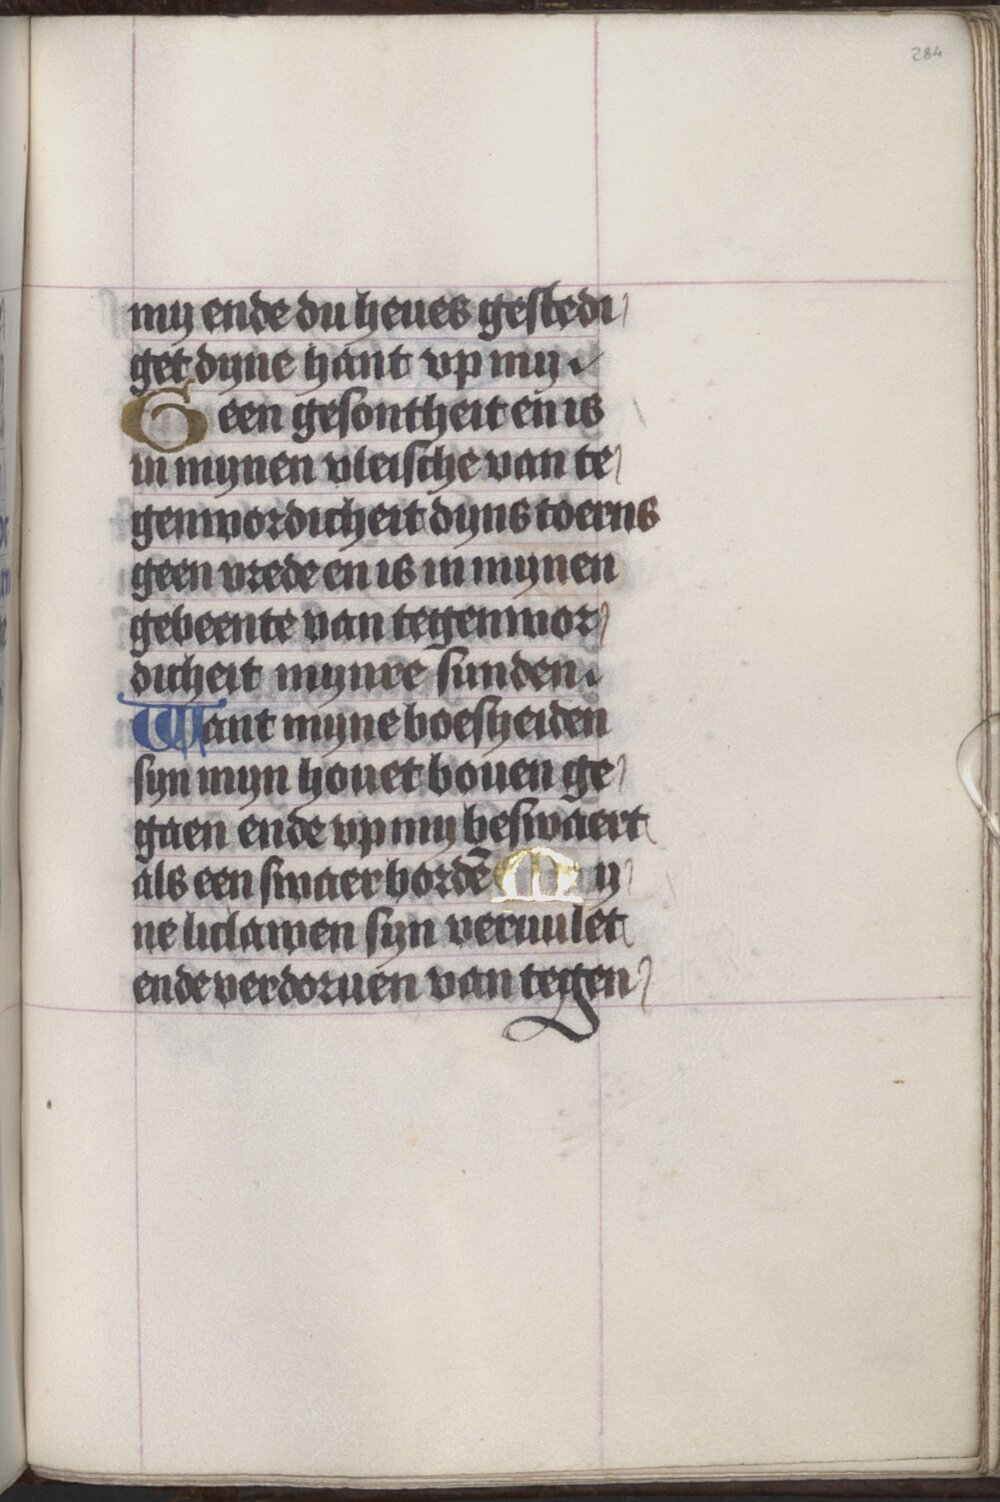 284
my ende du heues gestedi
get dyne hant vp my.
Geen gesontheit en is
in mynen vleische van te
genwordicheit dyns toerns
geen vrede en is in mynen
gebeente van tegenwor
dicheit mynre sunden.
Want myne boesheiden
syn myn houet bouen ge
gaen ende vp my beswaert
als een swaer bordē My
ne liclawen syn veruulet
ende verdoruen van tegen